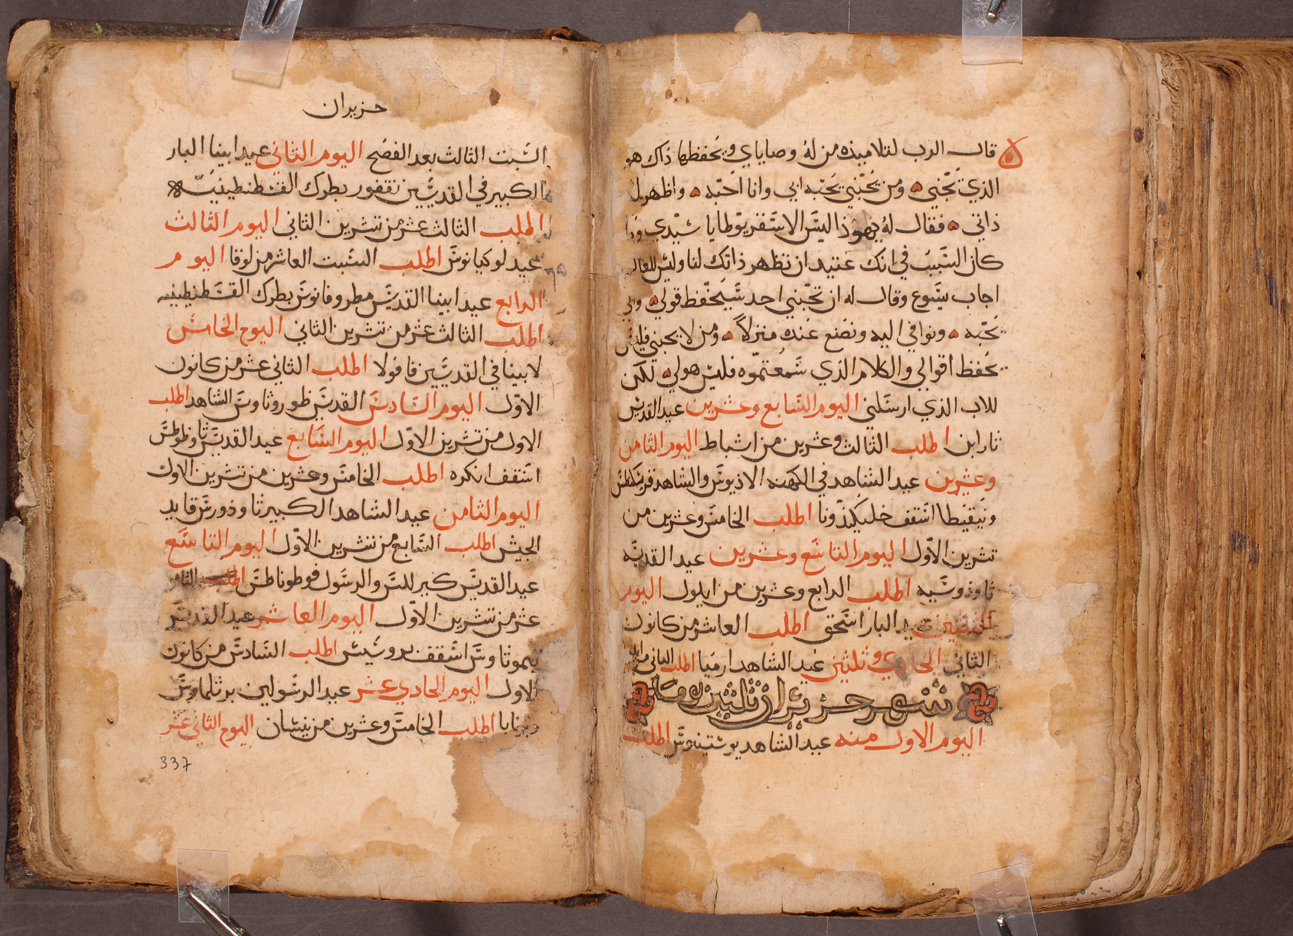 قال الرب لتلاميذه من له وصاياي ويحفظها ذاك هو
الذي يحبني ومن يحبني يحبه ابي وانا احبه واظهر له
ذاتي فقال له يهوذا ليس الاسقريوطا يا سيدي
كان السبب في انك عتيد ان تظهر ذاتك لنا وليس للعالم
اجاب يسوع وقال له ان يحبني احد سيحفظ قولي وابي
يحبه ونوافي اليه ونصنع عنده منزلاً ومن لا يحبني فليس
يحفظ اقوالي والكلام الذي سمعتموه فليس هو لي لكن
للاب الذي ارسلني اليوم السابع وعشرين عيد القديس
اطلب الثالث وعشرين من اشباط اليوم الثامن
وعشرين عيد الشاهد في الكهنه والشاهد
ونيقيطا اسقف خلكيذونا اطلب الخامس وعشرين من
تشرين الاول اليوم التاسع وعشرين عيد القديسه
ثاوذوسيه اطلب الرابع وعشرين من ايلول اليوم
البار اسحق اطلب العاشر من كانون
الثاني الحادي وثلثين عيد الشاهد ارميا اطلب الثاني
شهر حزيران ثلثين يوما
اليوم الاول منه عيد الشاهد يوستينوس اطلب
حزيران
السبت الثالث بعد الفصح اليوم الثاني عيد ابينا البار
الكبير في القديسين نقفور بطرك القسطنطينيه
اطلب الثالث عشر من تشرين الثاني اليوم الثالث
عيد لوكيانوس اطلب السبت العاشر من لوقا اليوم
الرابع عيد ابينا القديس مطروفانوس بطرك القسطنطينيه
اطلب الثالث عشر من تشرين الثاني اليوم الخامس
لابينا في القديسين اطلب الثاني عشر من كانون
الاول اليوم السادس القديس ظوروثاوس الشاهد اطلب
الاول من تشرين الاول اليوم السابع عيد القديس ثاوظوطس
اسقف انكره اطلب الخامس وعشرين من تشرين الاول
اليوم الثامن عيد الشاهد الكبير ثاوذورس قايد
الجيش اطلب السابع من تشرين الاول اليوم التاسع
عيد القديس كيرللس والرسول اطلب الثامن
عشر من تشرين الاول اليوم العاشر عيد القديس
تيموثاوس اسقف بروسيس اطلب السادس من كانون
الاول اليوم الحادي عشر عيد الرسولين برثلماوس
وبرنابا اطلب الخامس وعشرين من نيسان اليوم الثاني عشر
337